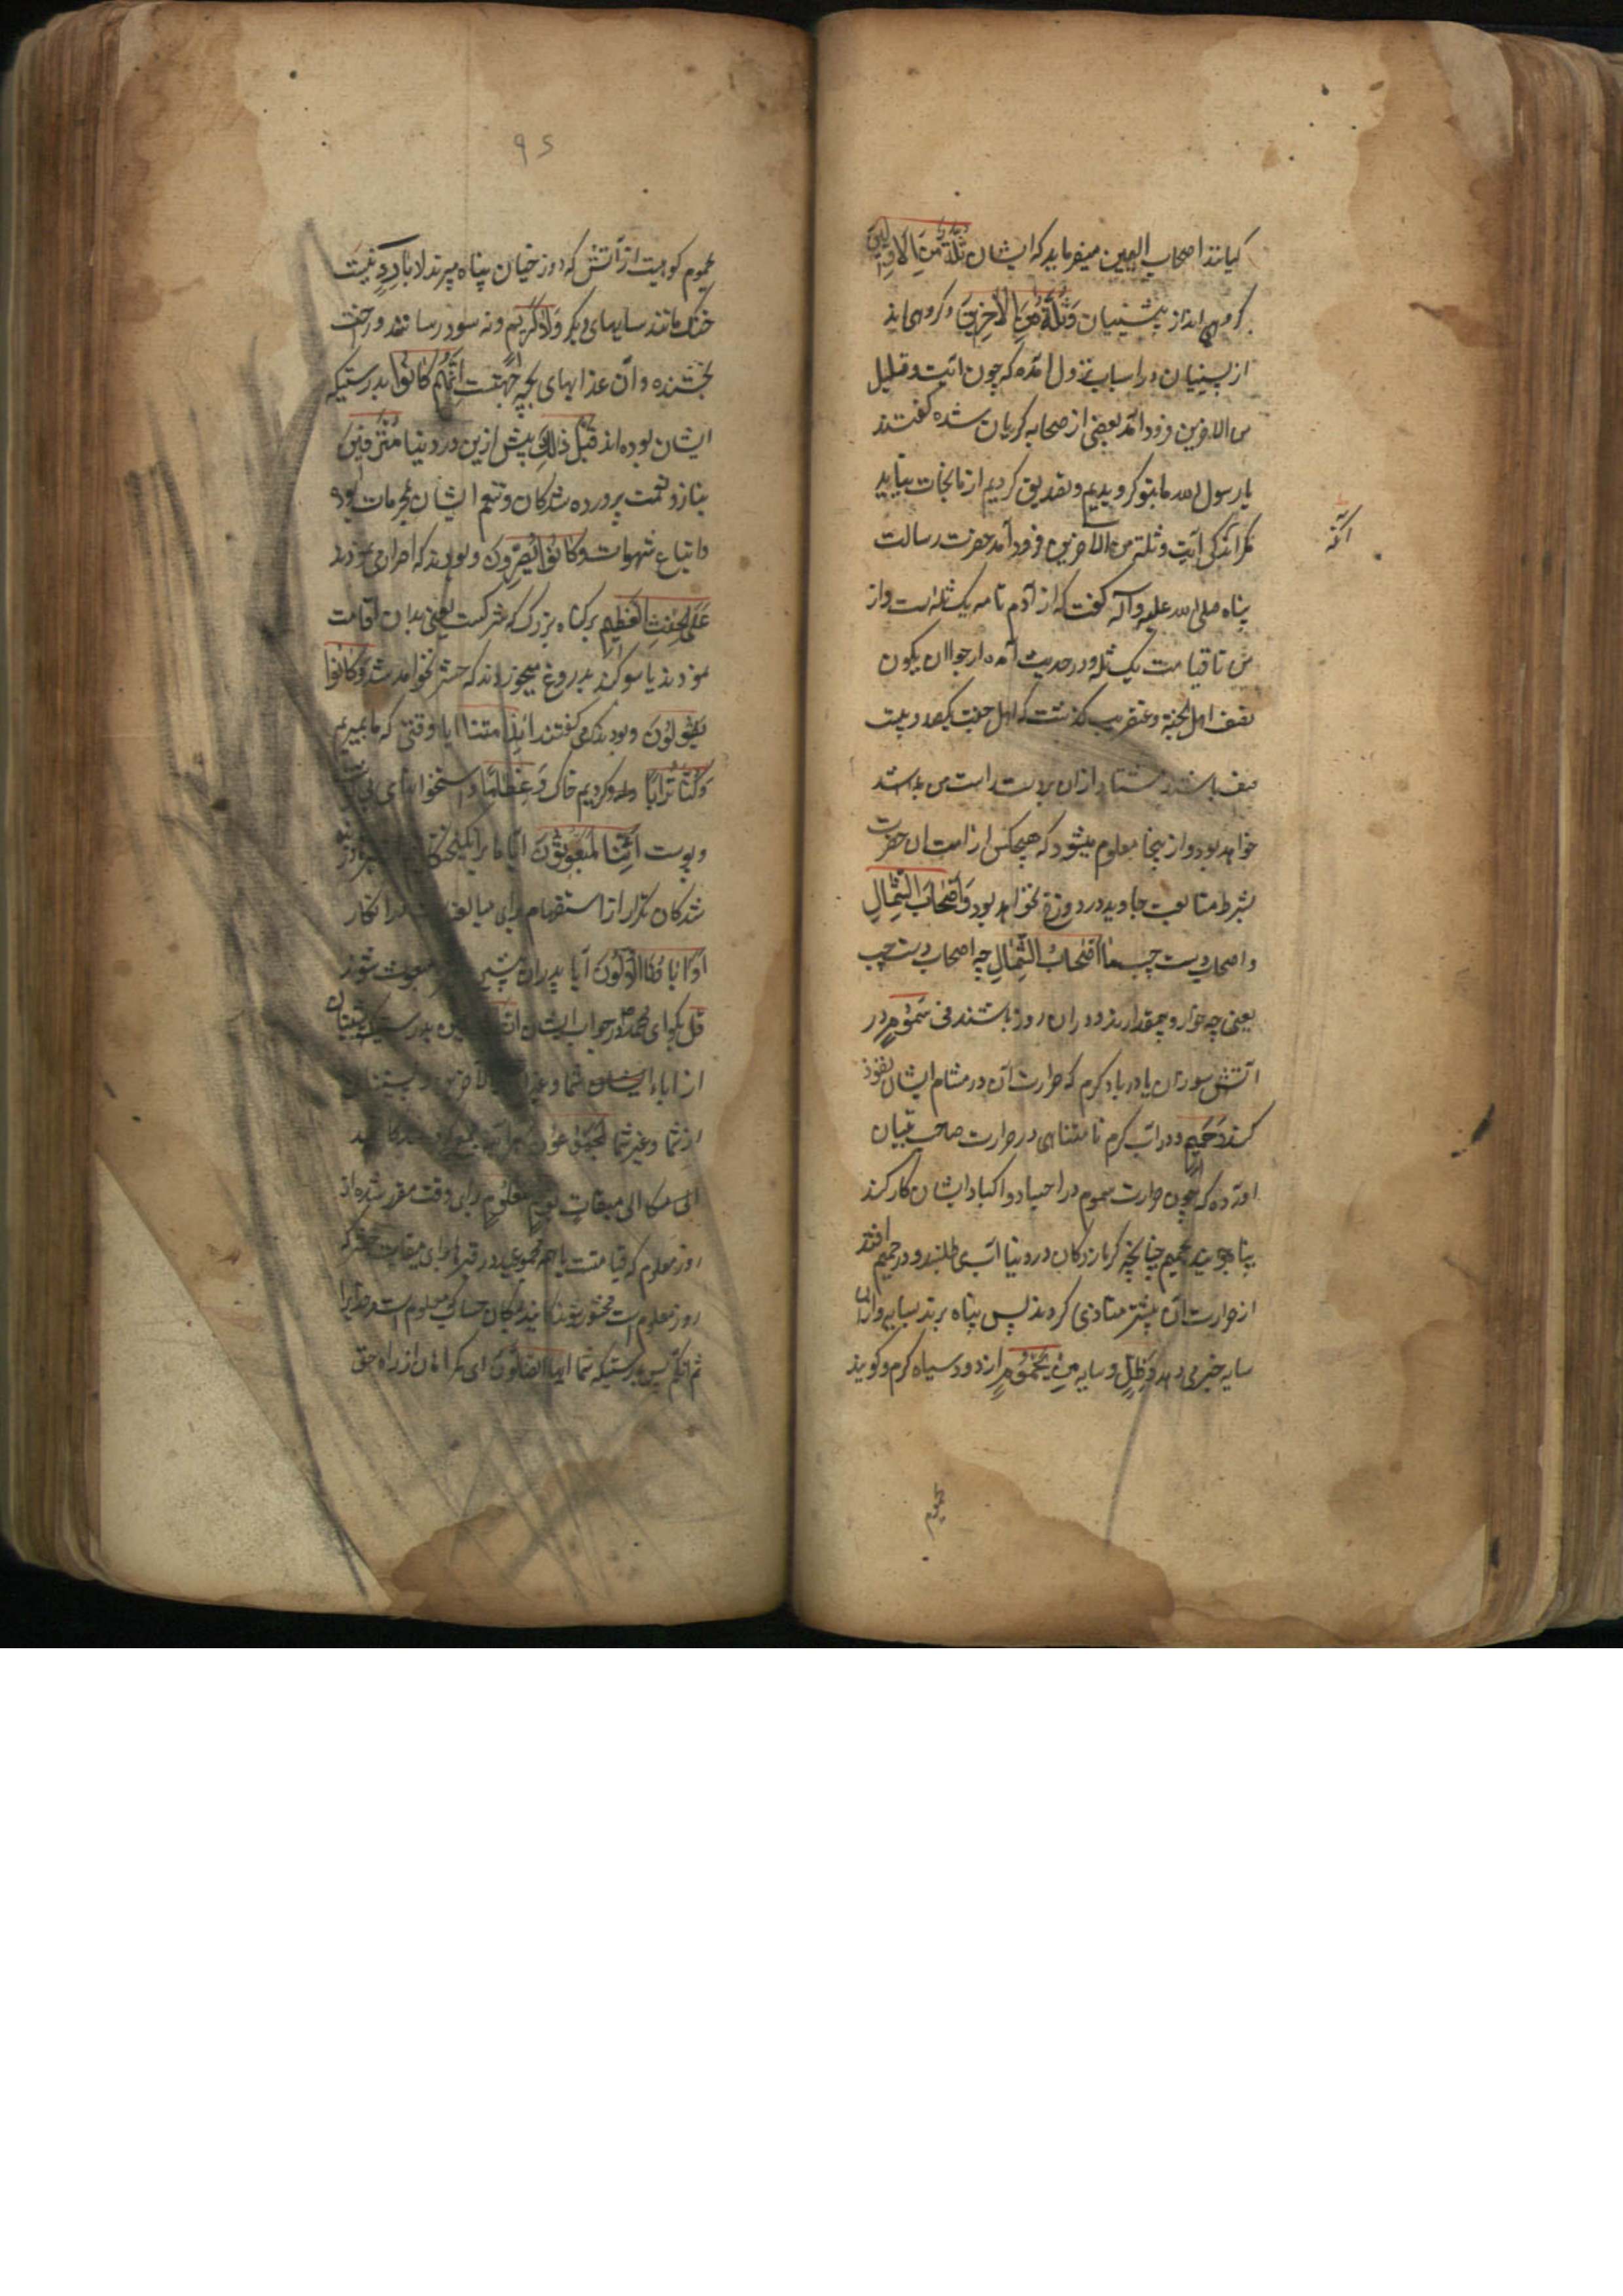 کیانند اصحاب الیمین میفرماید که ایشان ثُلَّةٌ مِنَ الاَوَّلینَ
گروهی‌اند از پیشینیان وَثُلَّةٌ مِنَ الآخِرِینَ و گروهی‌اند
از پسینیان در اسباب نزول آمده که چون آیت و قلیل
من الاخرین فرود آمد بعضی از صحابه گریان شده گفتند
یا رسول الله ما بتو گرویدیم و تصدیق کردیم از ما نجات نیابد
مگر اندکی آیت و ثلة من الاخرین فرود آمد حضرت رسالت
پناه صلی الله علیه وآله گفت که از آدم تا من یک ثله است و از
من تا قیامت یک ثله و در حدیث آمده ارجو ان یکون
نصف اهل الجنة و عنقریب گذشت که اهل جنت یکصد و بیست
صف باشند هشتاد از آن بر دست راست من
خواهد بود و از اینجا معلوم میشود که هیچکس از امت آن حضرت
بشرط متابعت جاوید در دوزخ نخواهد بود وَاَصْحَابُ الشِّمَالِ
و اصحاب دست چپ مَا اَصْحَابُ الشِّمَالِ چه اصحاب دست چپ
یعنی چه خوار و بیمقدارند در آن روز باشند فی سَمُومٍ در
آتش سوزان یا در باد گرم که حرارت آن در مشام ایشان نفوذ
کند وَحَمِیمٍ و در آب گرم نامتناهی در حرارت صاحب تبیان
آورده که چون حرارت سموم در اجساد و اکباد ایشان کار کند
پناه جویند بحمیم چنانچه گرمازدگان در دنیا آب می طلبند و در حمیم افتند
از حرارت آن بیشتر متاذی گردند پس پناه برند بسایه و از آن
سایه خبر می دهد وَظِلٍّ و سایه مِنْ یَحْمُومٍ از دود سیاه گرم و گویند
یحموم
۹۵
یحموم کوهیست از آتش که دوزخیان پناه میبرند لا بَارِدٍ نیست
خنک مانند سایهای دیگر وَلا کَرِیمٍ و نه سود رسانند و راحت
بخشنده و آن عذابهای بچه جهتست اِنَّهُمْ کَانُوا بدرستیکه
ایشان بوده‌اند قَبْلَ ذلِکَ پیش از این در دنیا مُتْرَفِینَ
بناز و نعمت پرورده شدگان و تنعم ایشان بمحرمات بود
و اتباع شهوات وَکَانُوا یُصِرُّونَ و بودند که اصرار می نمودند
عَلَی الْحِنْثِ الْعَظِیمِ بر گناه بزرگ که شرکست یعنی بدان اقامت
نمودند یا سوگند بدروغ میخوردند که حشر نخواهد شد وَکَانُوا
یَقُولُونَ و بودند که می گفتند اَئِذَا مِتْنَا آیا وقتی که ما بمیریم
وَکُنَّا تُرَابًا و گردیم خاک وَعِظَامًا و استخوانهای بی گوشت
و پوست اَئِنَّا لَمَبْعُوثُونَ آیا ما برانگیخته
شدگان تکرار از استفهام برای مبالغه در انکار
اَوَ آبَاؤُنَا الْاَوَّلُونَ آیا پدران مبعوث شوند
قل بگو ای محمد در جواب ایشان بدرستیکه پیشینیان
از آباء ایشان شما و غیر و پسینیان
از شما و غیر شما لَمَجْمُوعُونَ
اِلَی مِیقَاتِ یَوْمٍ مَعْلُومٍ برای وقت مقرر شده از
روز معلوم که قیامتست یا همه مجموعید در قبرها برای میقات محشر که
روز معلوم است
ثم انکم پس بدرستیکه شما ایها الضالون ای گمراهان از راه حق